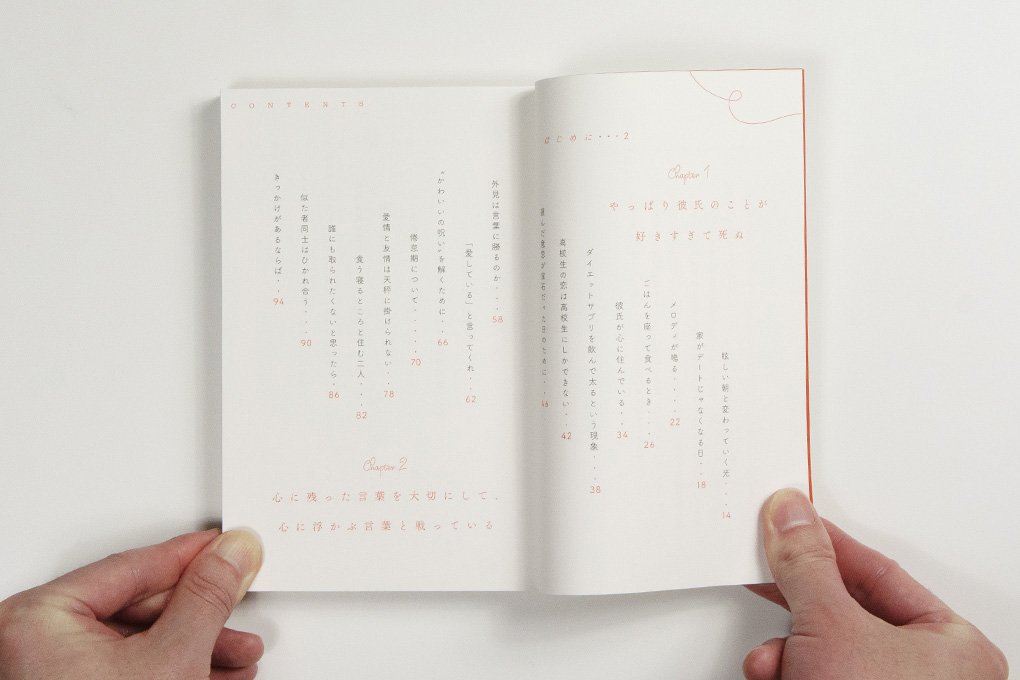 はじめに・・・2
Chapter 1
やっぱり彼氏のことが
好きすぎて死ぬ
眩しい朝と変わっていく光・・・14
家がデートじゃなくなる日・・18
メロディが鳴る・・・・22
ごはんを座って食べるとき・・・26
彼氏が心に住んでいる・・34
ダイエットサプリを飲んで太るという現象・・・38
高校生の恋は高校生にしかできない・・42
だった日のために・・46
CONTENTS
外見は言葉に勝るのか・・・58
「愛している」と言ってくれ・・62
“かわいいの呪い”を解くために・・66
倦怠期について・・・・・70
愛情と友情は天秤に掛けられない・・78
食う寝るところと住む二人・・・82
誰にも取られたくないと思ったら・86
似た者同士はひかれ合う・・・90
きっかけがあるならば・・94
Chapter 2
心に残った言葉を大切にして、
心に浮かぶ言葉と戦っている